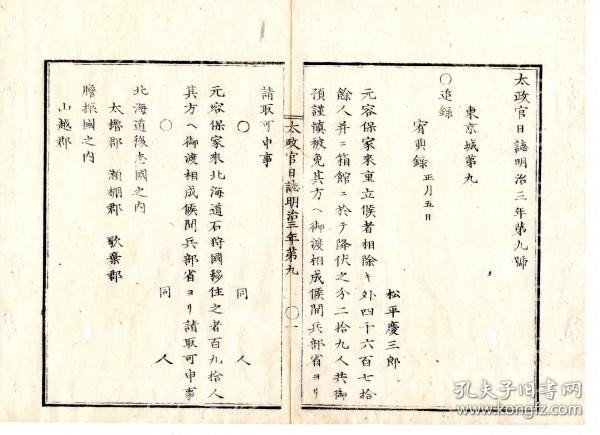 太政官日誌明治三年第九號
東京城第九
〇追錄
宥典錄 正月五日
松平慶三郎
元容保家來重立候者相除キ外四千六百七拾
餘人并ニ箱館ニ於テ降伏之分二拾九人共御
預謹愼被免其方ヘ御渡相成候間兵部省ヨリ
太政官日誌明治三年第九 〇一
請取可申事
〇 同人
元容保家來北海道石狩國移住之者百九拾人
其方ヘ御渡相成候間兵部省ヨリ請取可申事
〇 同人
北海道後志國之內
太櫓郡 瀨棚郡 歌棄郡
膽振國之內
山越郡
孔夫子旧书网
www.kongfz.com